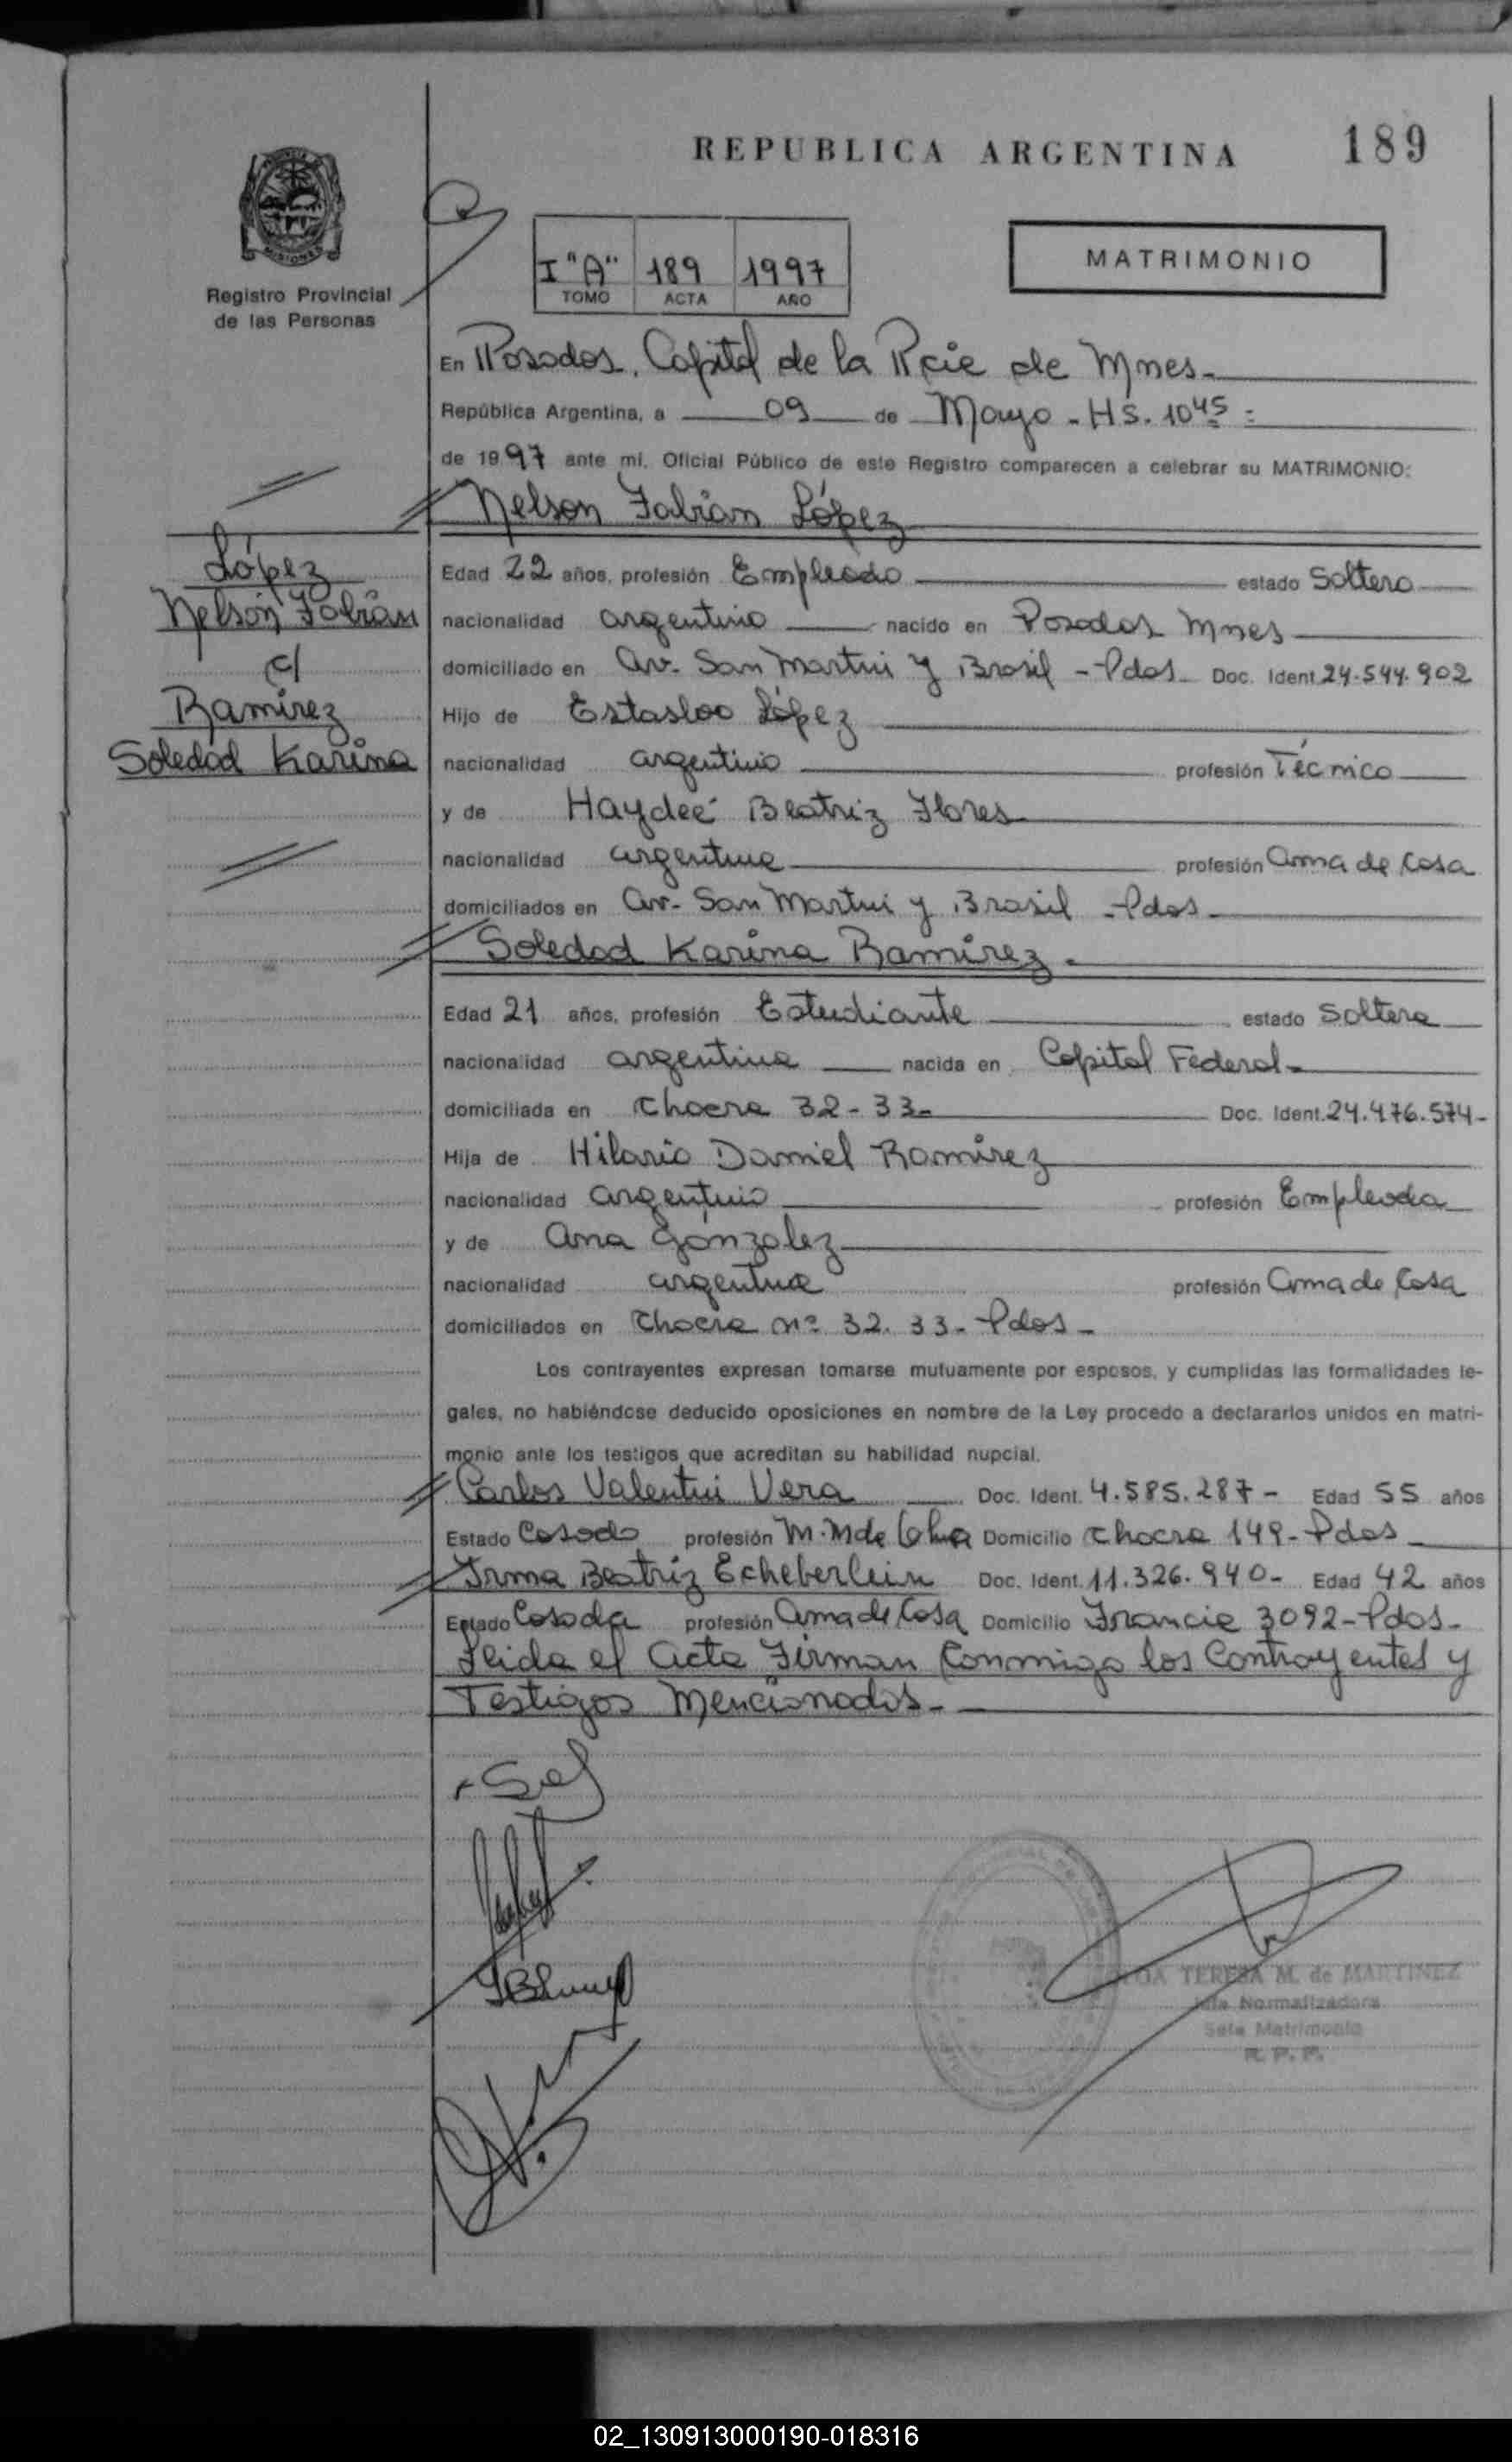 REPUBLICA ARGENTINA 189
MISIONES
Registro Provincial
de las Personas
I "A" 189 1997
TOMO ACTA AÑO
MATRIMONIO
En Posadas, Capital de la Pcie de Mnes-
República Argentina, a 09 de Mayo - HS. 10 45 =
de 1997 ante mí, Oficial Público de este Registro comparecen a celebrar su MATRIMONIO:
Nelson Fabian López
López
Nelson Fabián
c/
Ramírez
Soledad Karina
Edad 22 años, profesión Empleado estado Soltero
nacionalidad argentino nacido en Posadas Mnes
domiciliado en Av. San Martin y Brasil - Pdas Doc. Ident 24.544.902
Hijo de Estaslao López
nacionalidad argentino profesión Técnico
y de Haydeé Beatriz Flores
nacionalidad argentina profesión ama de casa
domiciliados en Av. San Martin y Brasil - Pdas -
Soledad Karina Ramírez -
Edad 21 años, profesión Estudiante estado Soltera
nacionalidad argentina nacida en Capital Federal-
domiciliada en Chacra 32-33- Doc. Ident. 24.476.574-
Hija de Hilario Daniel Ramírez
nacionalidad argentino profesión Empleado
y de Ana Gonzalez
nacionalidad argentina profesión Ama de Casa
domiciliados en Chacra nº 32.33- Pdas -
Los contrayentes expresan tomarse mutuamente por esposos, y cumplidas las formalidades le-
gales, no habiéndose deducido oposiciones en nombre de la Ley procedo a declararlos unidos en matri-
monio ante los testigos que acreditan su habilidad nupcial.
Carlos Valentin Vera Doc. Ident. 4.585.287- Edad 55 años
Estado Casado profesión M. Mde Domicilio Chacra 149- Pdas
Irma Beatriz Echeberlein Doc. Ident. 11.326.940- Edad 42 años
Estado Casada profesión Ama de Casa Domicilio Francia 3092- Pdas-
Leida el Acta Firman Conmigo los Contrayentes y
Testigos Mencionados-
TERESA M. de MARTINEZ
Normalizadora
Matrimonio
R. P. P.
02_130913000190-018316